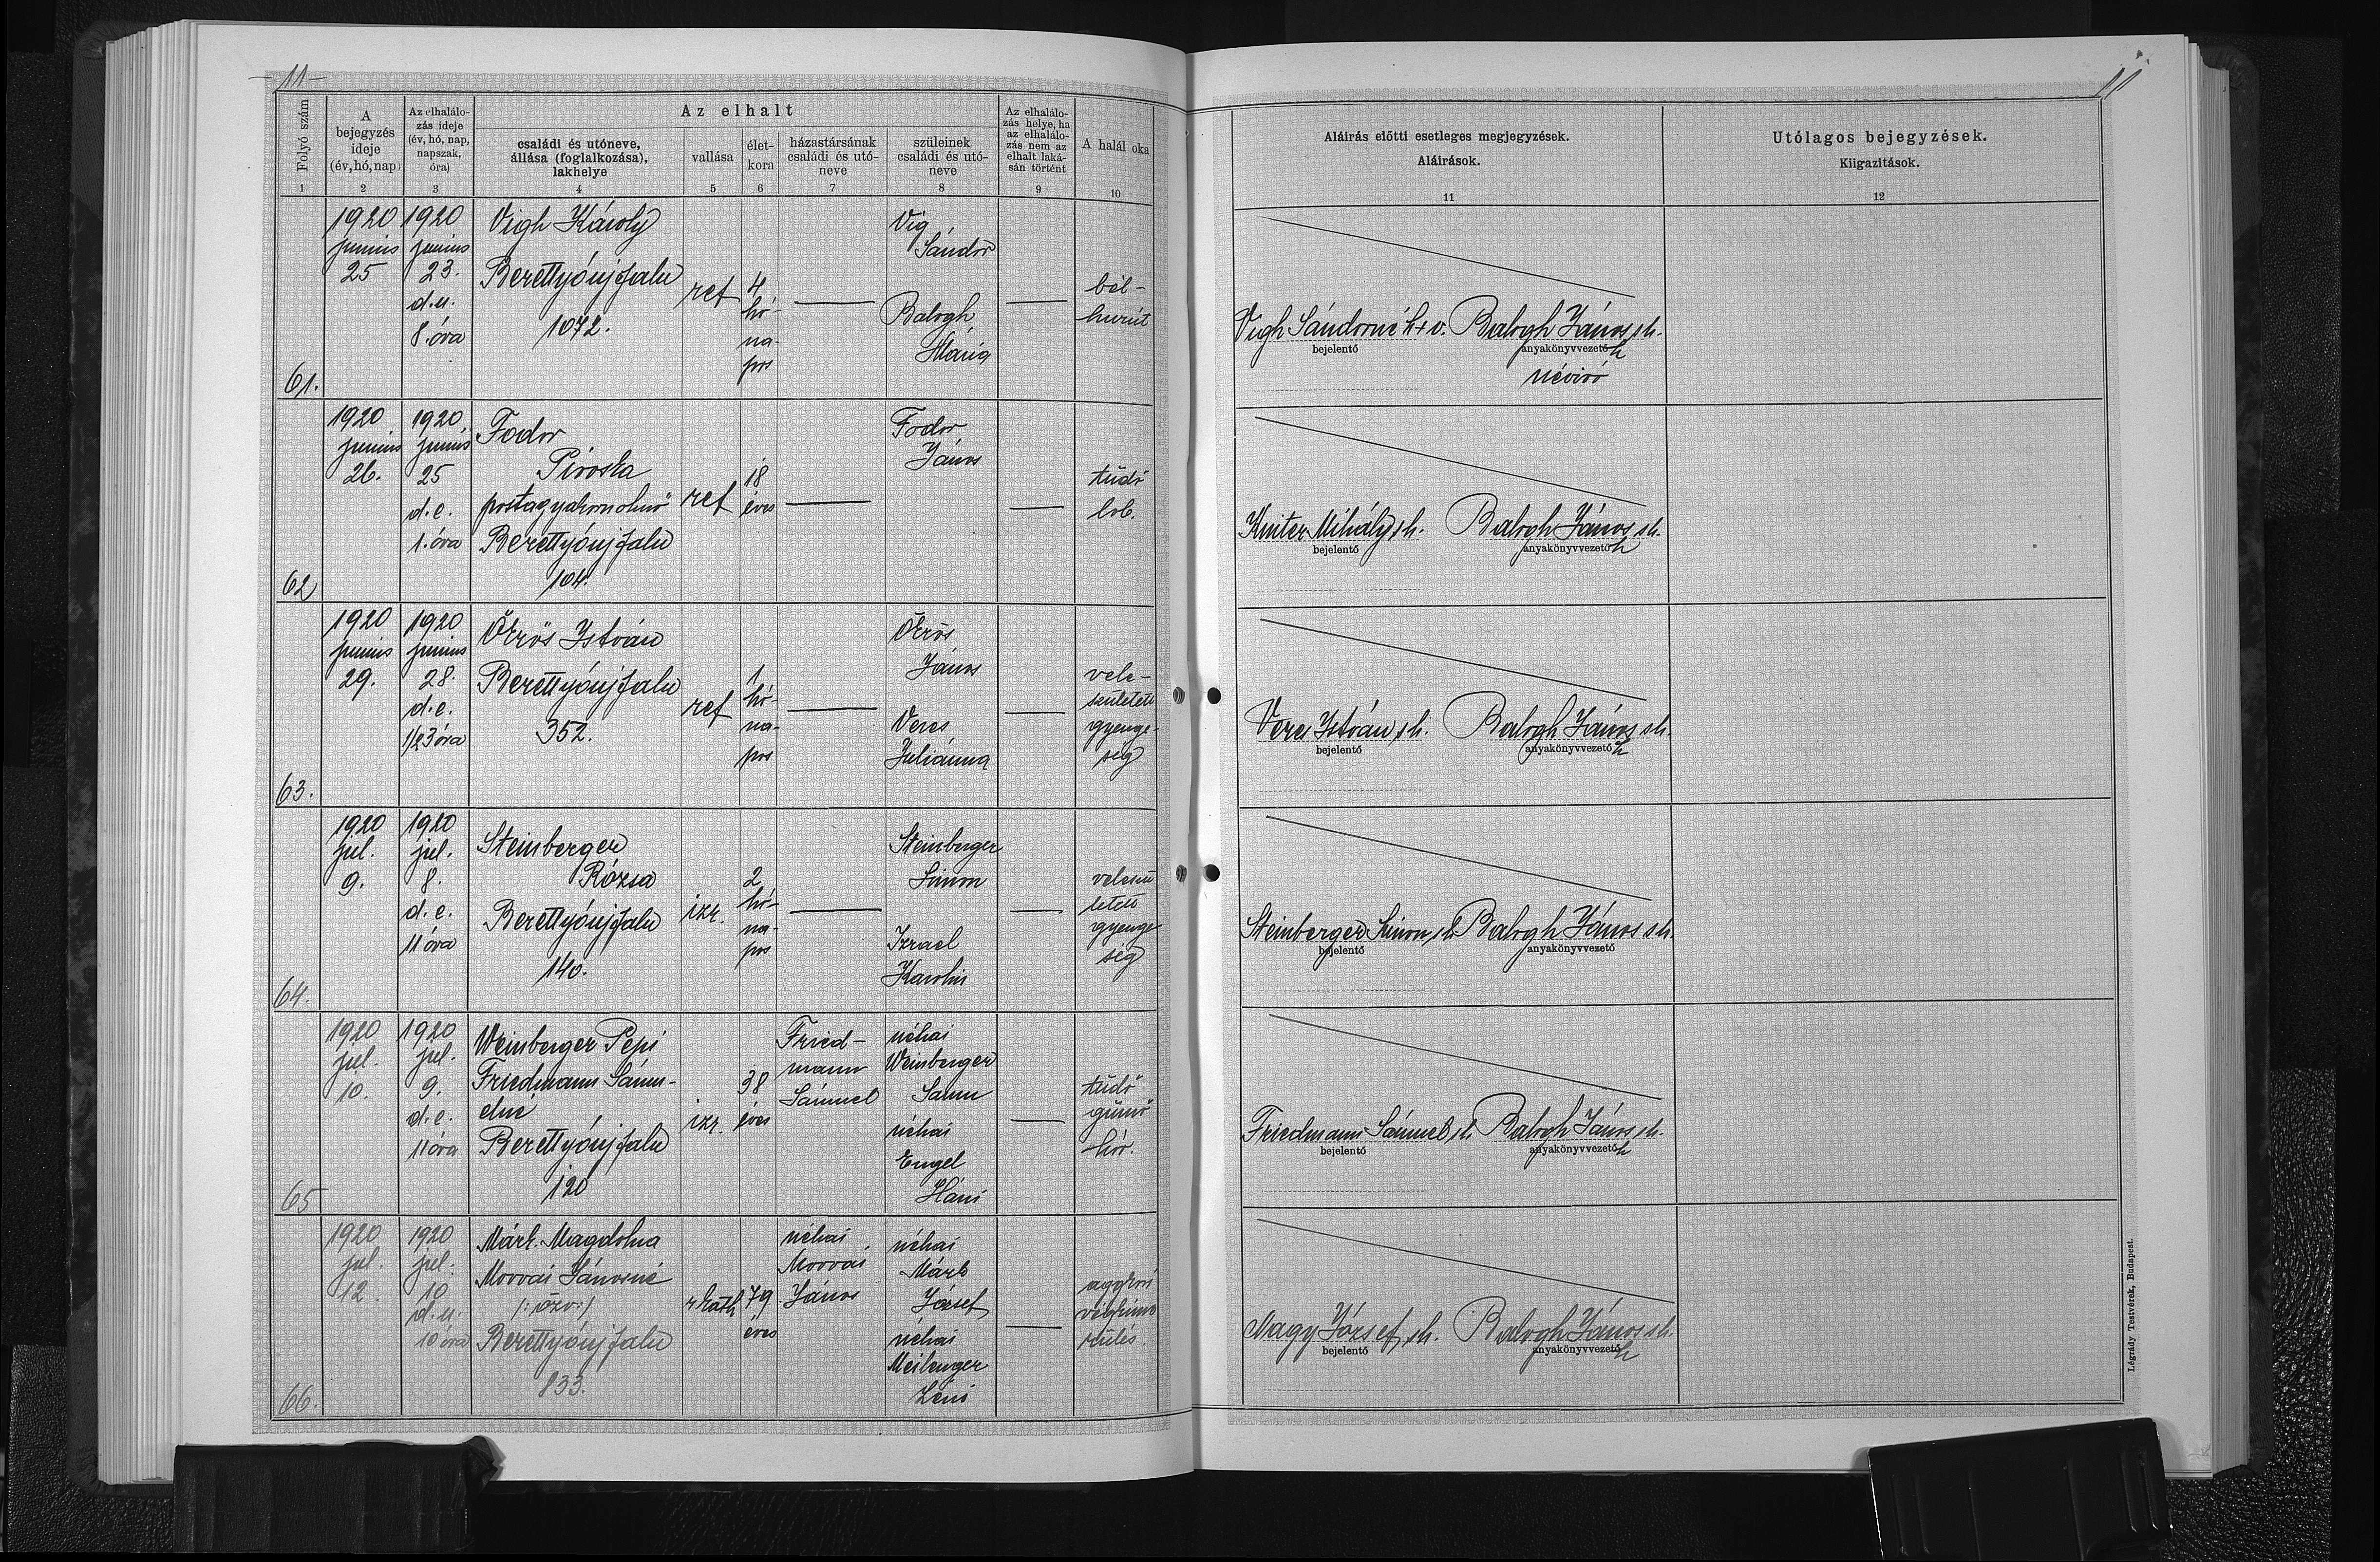 11
11
Folyó szám
A bejegyzés ideje (év, hó, nap)
Az elhalálozás ideje (év, hó, nap, napszak, óra)
Az elhalt
családi és utóneve, állása (foglalkozása), lakhelye
vallása
életkora
házastársának családi és utóneve
szüleinek családi és utóneve
Az elhalálozás helye, ha az elhalálozás nem az elhalt lakásán történt
A halál oka
Aláírás előtti esetleges megjegyzések.
Aláírások.
Utólagos bejegyzések.
Kiigazítások.
1 2 3 4 5 6 7 8 9 10 11 12
61.
1920 junius 25
1920 junius 23. d.u. 8. óra
Vigh Károly
Berettyóujfalu
1072.
ref
4 hó-
na-
pos
Vig
Sándor
Balogh
Mária
bél-
hurut
Vigh Sándorné k+v. Balogh János sh.
bejelentő anyakönyvvezető h
névíró
62
1920 junius 26.
1920 junius 25 d.e. 1. óra
Fodor
Piroska
postagyakornoknő
Berettyóujfalu
104.
ref
18
éves
Fodor
János
tüdő
lob.
Mihály sh. Balogh János sh.
bejelentő anyakönyvvezető h
63.
1920 junius 29.
1920 junius 28. d.e. 1/2 3 óra
Ökrös István
Berettyóujfalu
352.
ref
1
hó-
na-
pos
Ökrös
János
Veres
Juliánna
vele-
született
gyenge-
ség
Veres István sh. Balogh János sh.
bejelentő anyakönyvvezető h
64.
1920 jul. 9.
1920 jul. 8. d.e. 11 óra
Steinberger
Rózsa
Berettyóujfalu
140.
izr.
2
hó-
na-
pos
Steinberger
Simon
Izrael
Karolin
veleszü
letett
gyenge
ség
Steinberger Simon sh. Balogh János sh.
bejelentő anyakönyvvezető
65
1920 jul. 10.
1920 jul. 9. d.e. 11 óra
Weinberger Pepi
Friedmann Sámu-
elné
Berettyóujfalu
120
izr.
38
éves
Fried-
mann
Sámuel
néhai
Weinberger
Samu
néhai
Engel
Háni
tüdő
gümő
kór.
Friedmann Sámuel sh. Balogh János sh.
bejelentő anyakönyvvezető h
66.
1920 jul. 12.
1920 jul. 10 d.u. 10 óra
Márk Magdolna
Morvai Jánosné
(: özv :)
Berettyóujfalu
833.
r kath
79
éves
néhai
Morvai
János
néhai
Márk
József
néhai
Léni
aggkori
végkime
rülés.
Nagy József sh. Balogh János sh.
bejelentő anyakönyvvezető h
Légrády Testvérek, Budapest.